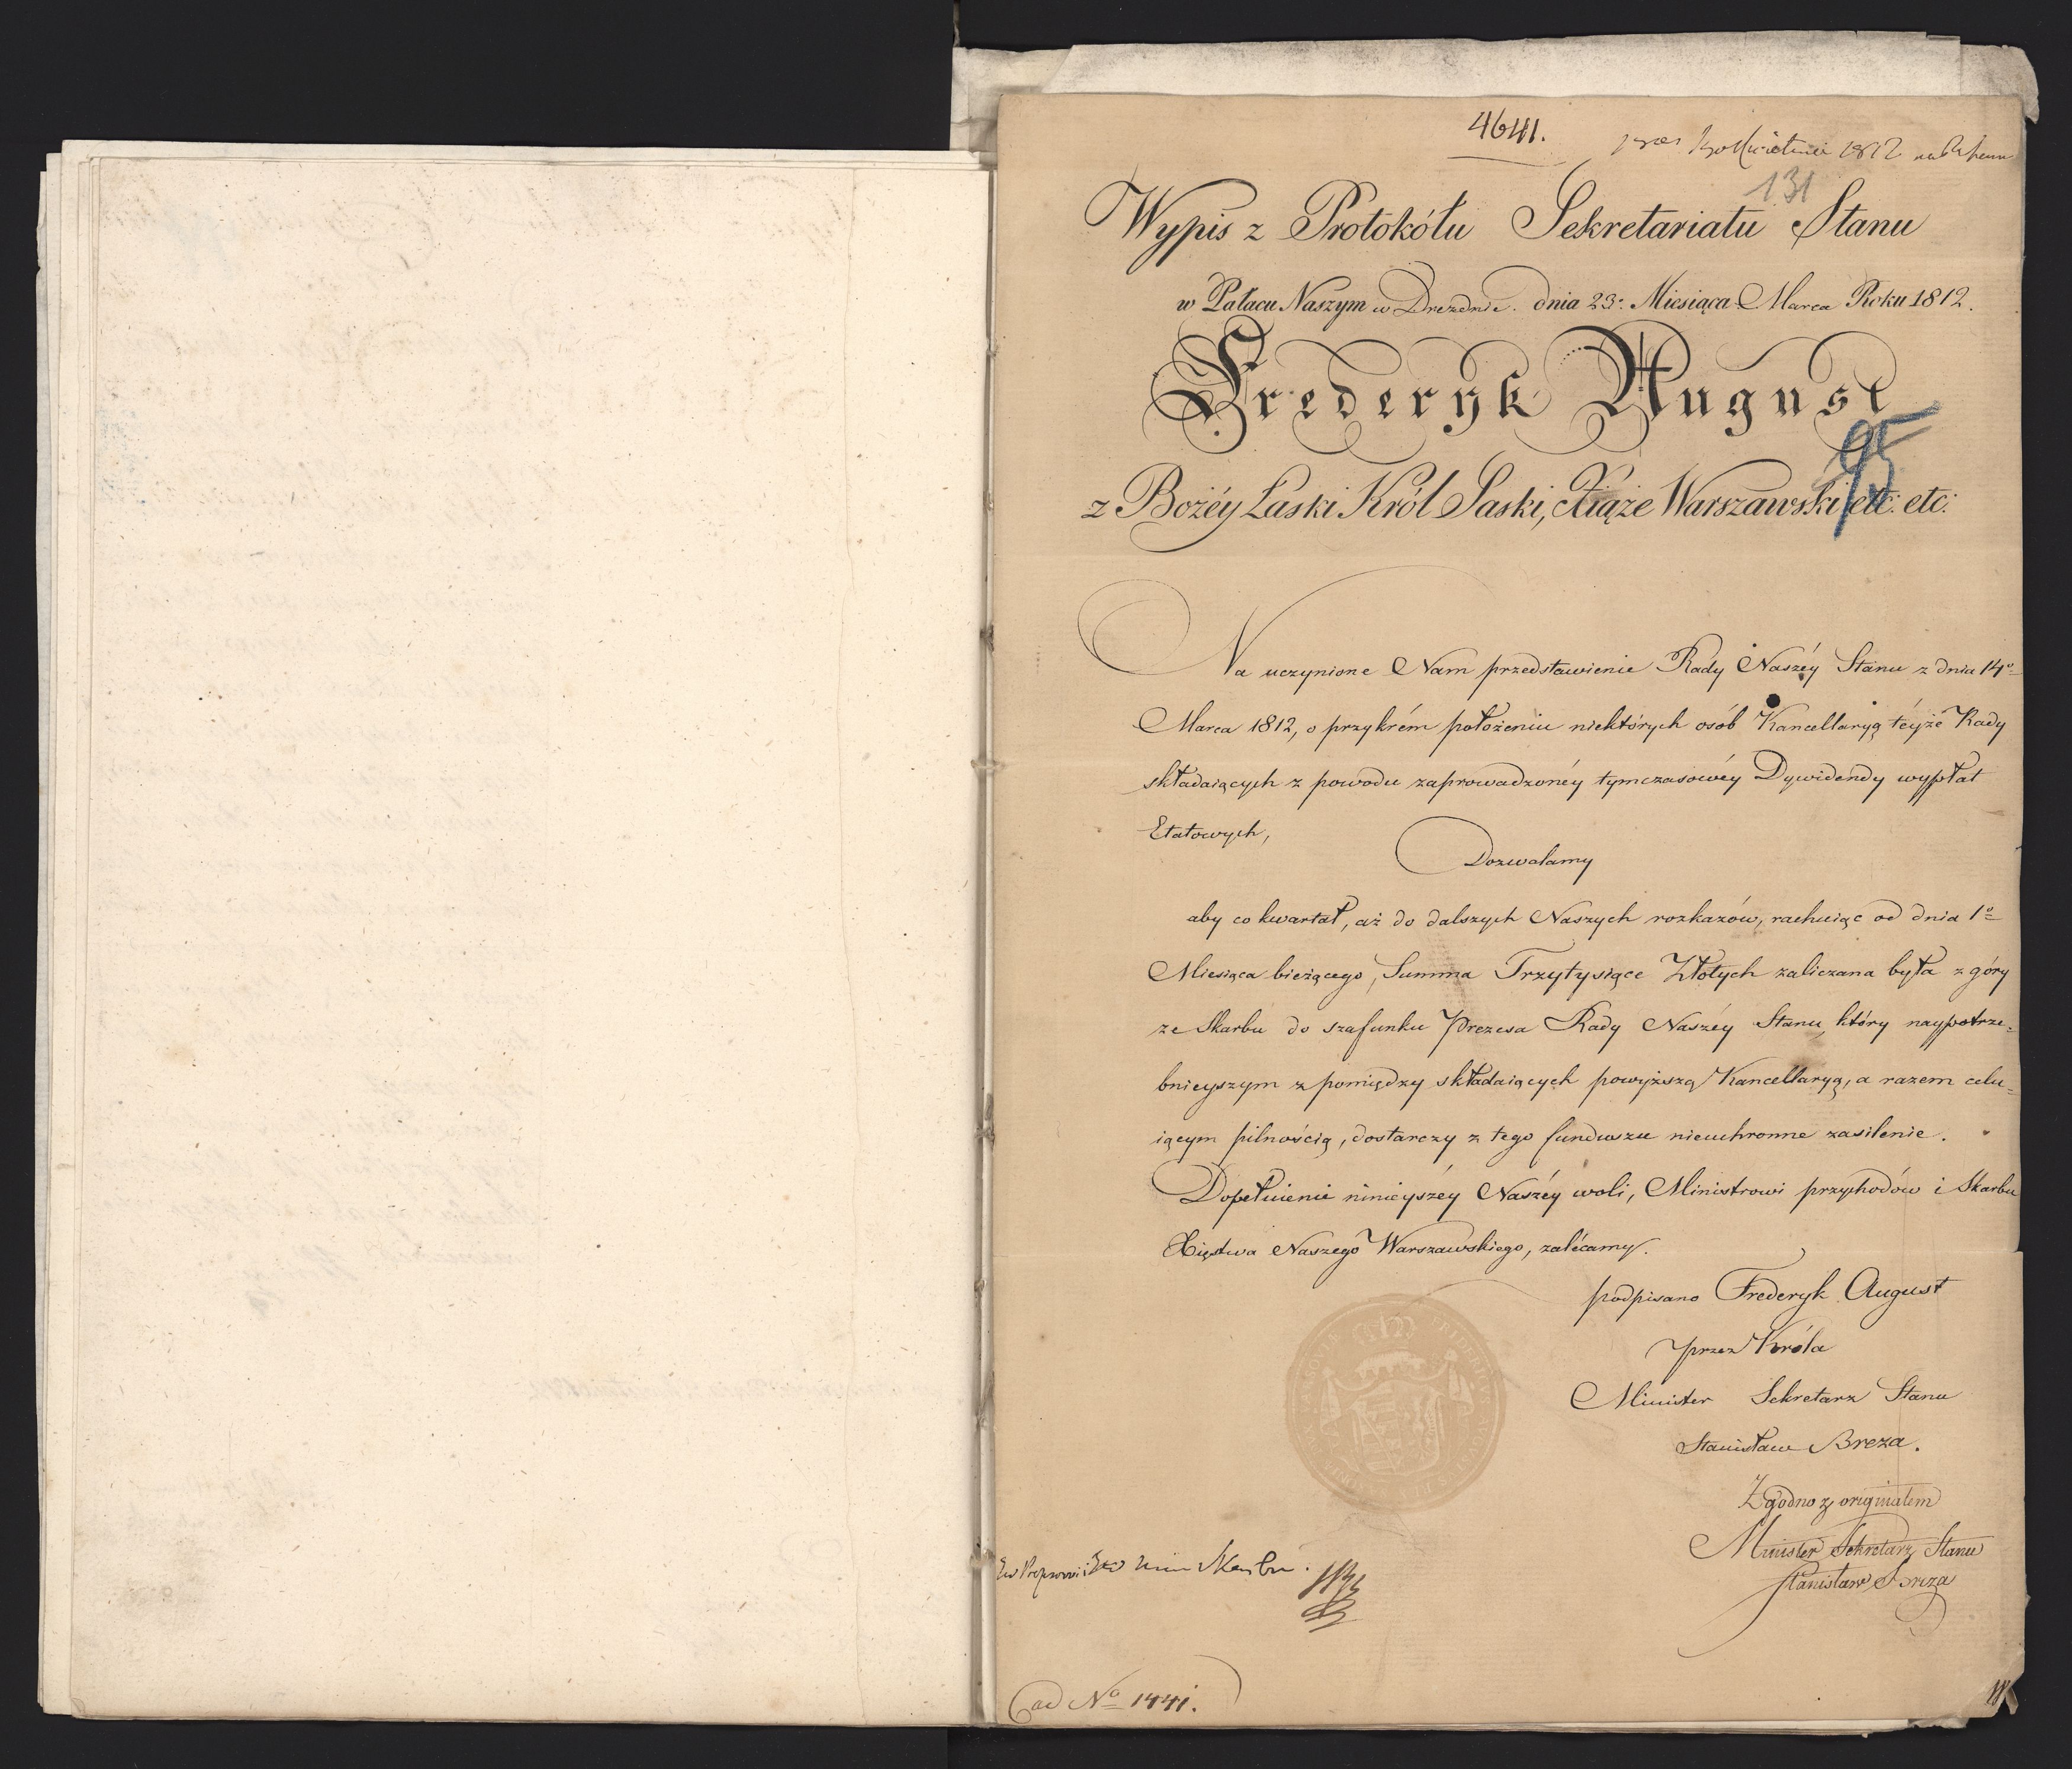 4641.
Kwietnia 1812
131
Wypis z Protokółu Sekretariatu Stanu
w Pałacu Naszym w Dreznie. dnia 23º Miesiąca Marca Roku 1812.
Frederyk August
95
z Bożéy Łaski Król Saski, Xiąże Warszawski etc: etc:
Na uczynione Nam przedstawienie Rady Naszéy Stanu z dnia 14º
Marca 1812, o przykrém położeniu niektórych osób Kancellaryą téyże Rady
składaiących z powodu zaprowadzonéy tymczasowéy Dywidendy wypłat
Etatowych,
Dozwalamy
aby co kwartał, aż do dalszych Naszych rozkazów, rachuiąc od dnia 1º
Miesiąca bieżącego, Summa Trzytysiące Złotych zaliczana była z góry
ze Skarbu do szafunku Prezesa Rady Naszéy Stanu, który naypotrze=
bnieyszym z pomiędzy składaiących powyższą Kancellaryą, a razem celu=
iącym pilnością, dostarczy z tego funduszu nieuchronne zasilenie.
Dopełnienie ninieyszéy Naszéy woli, Ministrowi przychodów i Skarbu
Xięstwa Naszego Warszawskiego, zalécamy.
podpisano Frederyk August
przez Króla
Minister Sekretarz Stanu
Stanisław Breza.
Zgodno z originałem
Minister Sekretarz Stanu
Stanisław Breza
Skarbu.
ad Nº 1441.